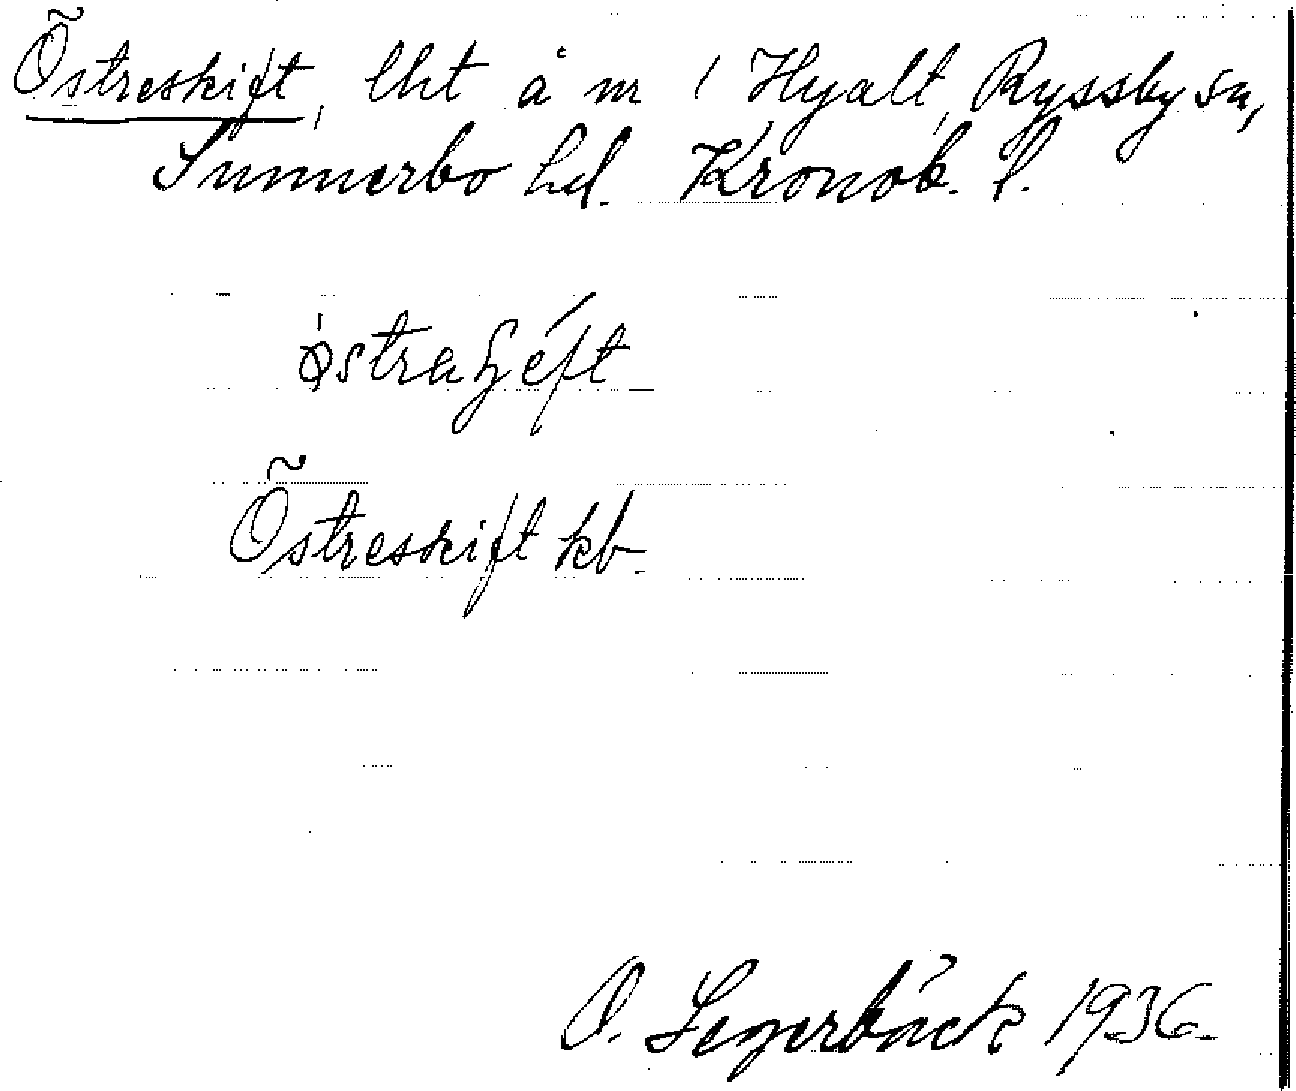 Östreskift, lht å nr 1 Hyalt, Ryssby sn,
Sunnerbo hd. Kronob. l.
Östreskift kb.
O. Segerbäck 1936.